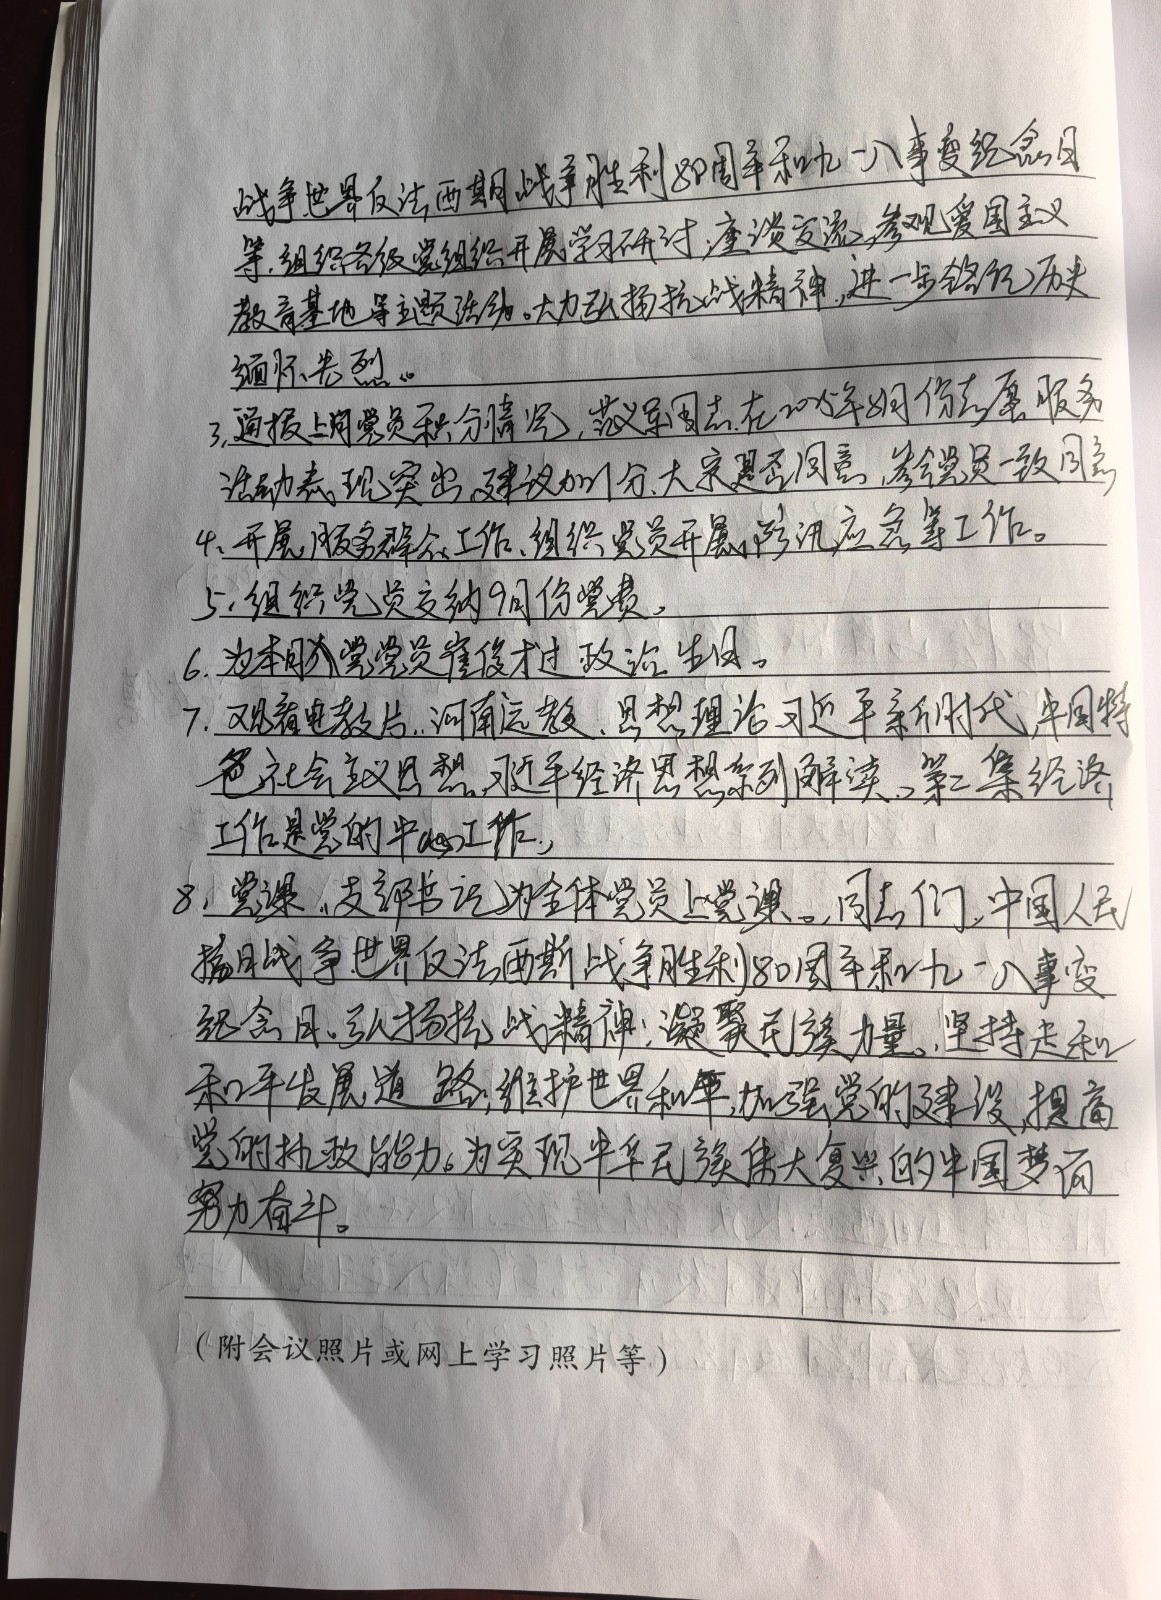 战争世界反法西斯战争胜利80周年和九一八事变纪念日
等,组织各级党组织开展学习研访、座谈交流、参观爱国主义
教育基地等主题活动。大力弘扬抗战精神,进一步铭记历史
缅怀先烈。
3、通报上月党员积分情况,范义军同志在2025年8月份志愿服务
活动表现突出,建议加1分、大家是否同意,参会党员一致同意
4、开展服务群众工作、组织党员开展防汛应急等工作。
5、组织党员交纳9月份党费。
6、为本月入党党员崔俊才过政治生日。
7、观看电教片,河南远教、思想理论习近平新时代中国特
色社会主义思想,习近平经济思想系列解读、第二集经济
工作是党的中心工作,
8、党课、支部书记为全体党员上党课。同志们,中国人民
抗日战争世界反法西斯战争胜利80周年和九一八事变
纪念日、弘扬抗战精神;凝聚民族力量、坚持走和
和平发展道路,维护世界和平,加强党的建设,提高
党的执政能力。为实现中华民族伟大复兴的中国梦而
努力奋斗。
(附会议照片或网上学习照片等)